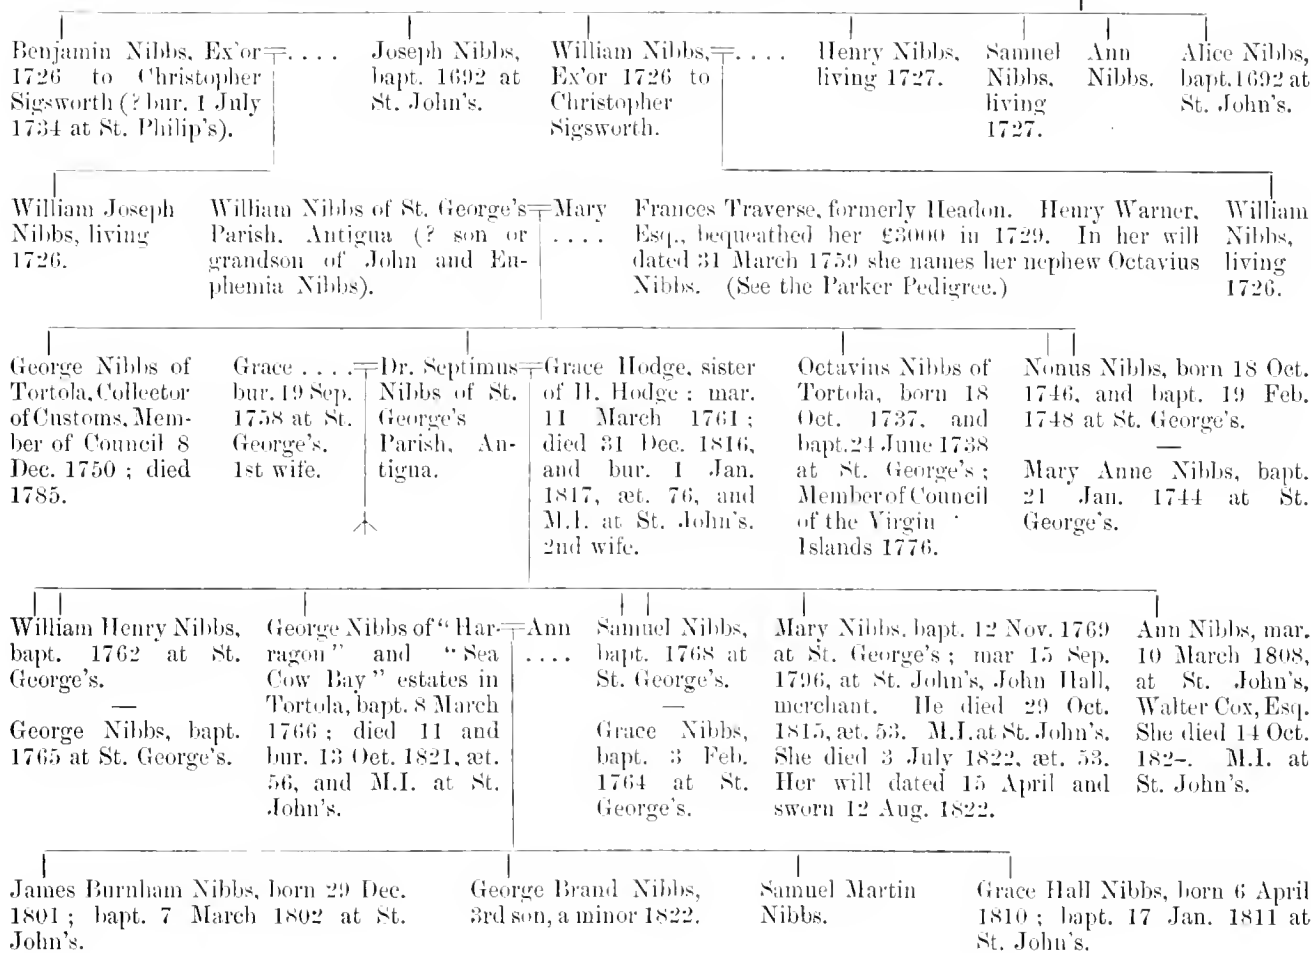 Benjamin Nibbs, Ex'or
1726 to Christopher
Sigsworth (? bur. 1 July
1734 at St. Philip's).
....
Joseph Nibbs,
bapt. 1692 at
St. John's.
William Nibbs,
Ex'or 1726 to
Christopher
Sigsworth.
....
Henry Nibbs,
living 1727.
Samuel
Nibbs,
living
1727.
Ann
Nibbs.
Alice Nibbs,
bapt. 1692 at
St. John's.
William Joseph
Nibbs, living
1726.
William Nibbs of St. George's
Parish, Antigua (? son or
grandson of John and Eu-
phemia Nibbs).
Mary
....
Frances Traverse, formerly Headon. Henry Warner,
Esq., bequeathed her £3000 in 1729. In her will
dated 31 March 1759 she names her nephew Octavius
Nibbs. (See the Parker Pedigree.)
William
Nibbs,
living
1726.
George Nibbs of
Tortola, Collector
of Customs, Mem-
ber of Council 8
Dec. 1750 ; died
1785.
Grace ....
bur. 19 Sep.
1758 at St.
George's.
1st wife.
Dr. Septimus
Nibbs of St.
George's
Parish, An-
tigua.
Grace Hodge, sister
of H. Hodge ; mar.
11 March 1761 ;
died 31 Dec. 1816,
and bur. 1 Jan.
1817, æt. 76, and
M.I. at St. John's.
2nd wife.
Octavius Nibbs of
Tortola, born 18
Oct. 1737, and
bapt. 24 June 1738
at St. George's ;
Member of Council
of the Virgin
Islands 1776.
Nonus Nibbs, born 18 Oct.
1746, and bapt. 19 Feb.
1748 at St. George's.
—
Mary Anne Nibbs, bapt.
21 Jan. 1744 at St.
George's.
William Henry Nibbs,
bapt. 1762 at St.
George's.
—
George Nibbs, bapt.
1765 at St. George's.
George Nibbs of "Har-
ragon" and "Sea
Cow Bay" estates in
Tortola, bapt. 8 March
1766 ; died 11 and
bur. 13 Oct. 1821, æt.
56, and M.I. at St.
John's.
Ann
....
Samuel Nibbs,
bapt. 1768 at
St. George's.
—
Grace Nibbs,
bapt. 3 Feb.
1764 at St.
George's.
Mary Nibbs, bapt. 12 Nov. 1769
at St. George's ; mar 15 Sep.
1796, at St. John's, John Hall,
merchant. He died 29 Oct.
1815, æt. 53. M.I. at St. John's.
She died 3 July 1822, æt. 53.
Her will dated 15 April and
sworn 12 Aug. 1822.
Ann Nibbs, mar.
10 March 1808,
at St. John's,
Walter Cox, Esq.
She died 14 Oct.
182–. M.I. at
St. John's.
James Burnham Nibbs, born 29 Dec.
1801 ; bapt. 7 March 1802 at St.
John's.
George Brand Nibbs,
3rd son, a minor 1822.
Samuel Martin
Nibbs.
Grace Hall Nibbs, born 6 April
1810 ; bapt. 17 Jan. 1811 at
St. John's.